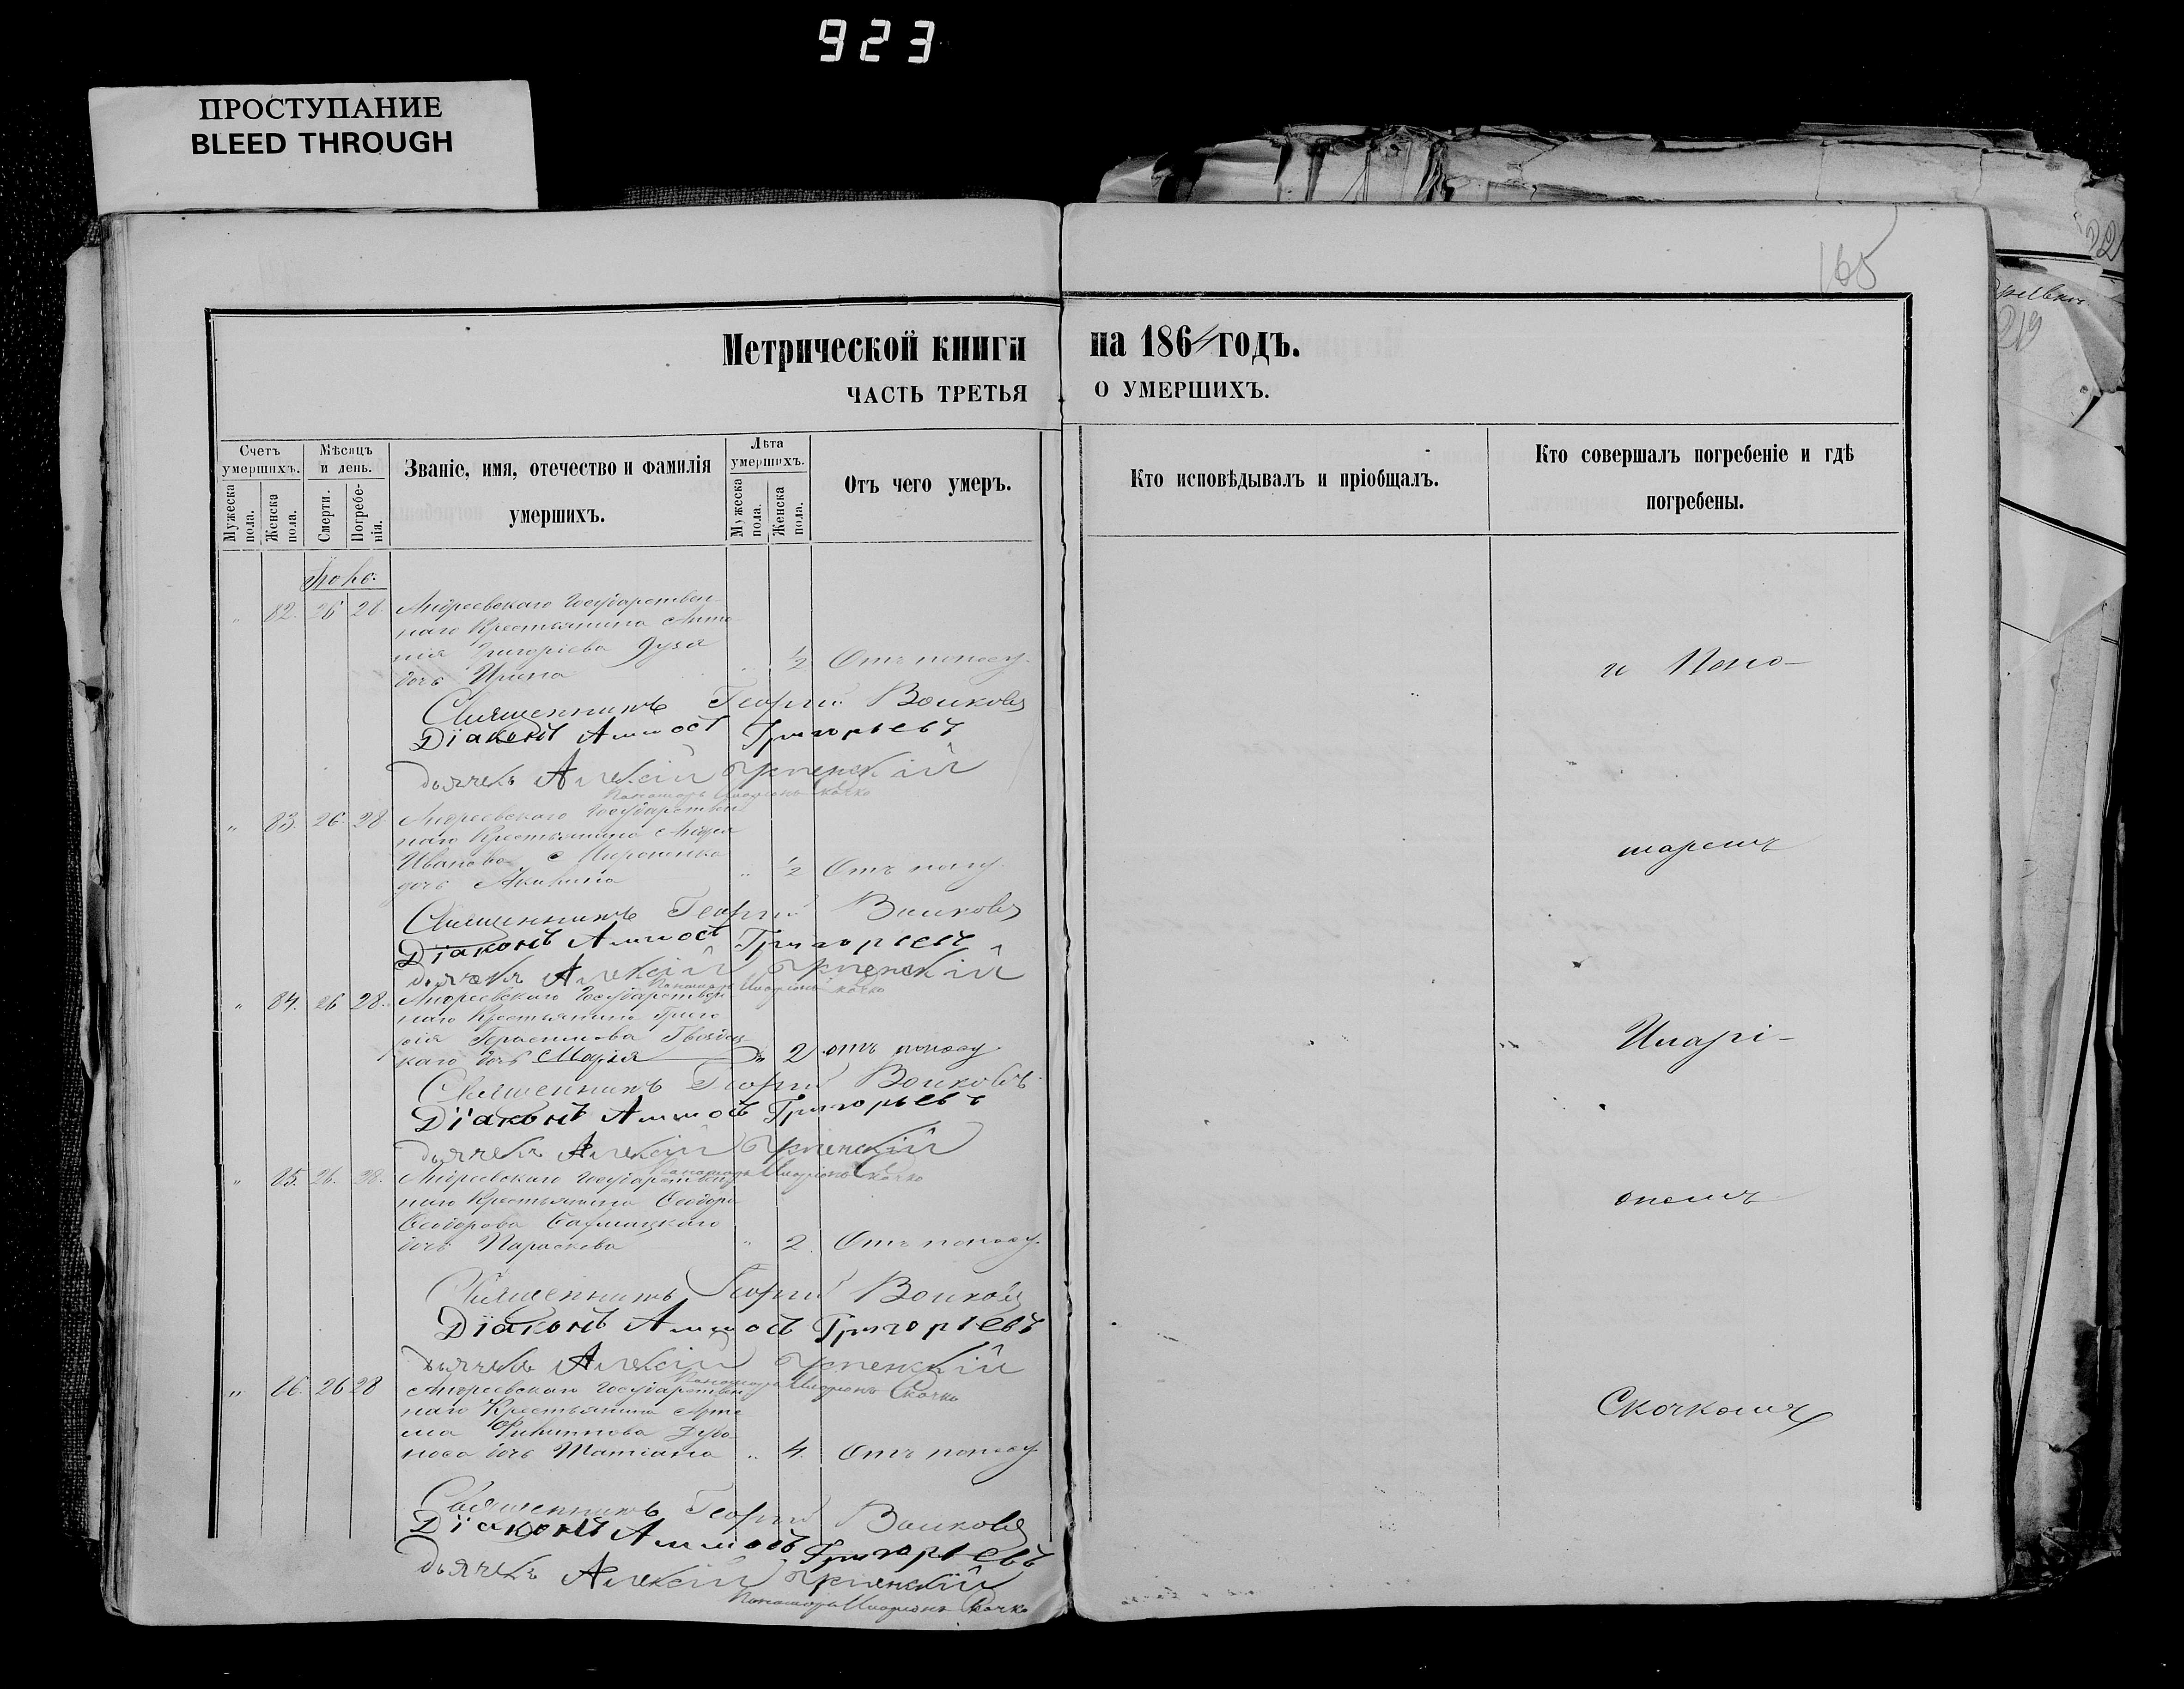 923
ПРОСТУПАНИЕ
BLEED THROUGH
165
Метрической книги на 1864 годъ.
ЧАСТЬ ТРЕТЬЯ О УМЕРШИХЪ.
Счетъ умершихъ.
Мужеска пола.
Женска пола.
Мѣсяцъ и день.
Смерти.
Погребенія.
Званіе, имя, отечество и фамилія умершихъ.
Лѣта умершихъ.
Мужеска пола.
Женска пола.
Отъ чего умеръ.
Кто исповѣдывалъ и пріобщалъ.
Кто совершалъ погребеніе и гдѣ погребены.
" 82. 26 28. Андреевскаго Государствен-
наго Крестьянина Анто
нія Григоріева
дочь Ирина " 1/2 Отъ поносу. и Поно-
Священникъ Георгій Волковъ
Діаконъ Григорьевъ
дьячекъ Алексій
Пономарь Иларіонъ Скочко
" 83. 26. 28 Андреевскаго Государствен
наго Крестьянина Андрея
Иванова
дочь Акилина " 1/2 Отъ поносу. маремъ
Священникъ Георгій Волковъ
Діаконъ Григорьевъ
дьячекъ Алексій
Пономарь Иларіонъ Скочко
" 84. 26 28. Андреевскаго Государствен
наго Крестьянина Григо
рія Герасимова Гвоздец
каго дочь Марія " 2 отъ поносу Иларі-
Священникъ Георгій Волковъ
Діаконъ Григорьевъ
дьячекъ Алексій
Пономарь Иларіонъ Скочко
" 85. 26. 28. Андреевскаго Государствен
наго Крестьянина Ѳеодора
Ѳеодорова
дочь Параскева " 2 Отъ поносу. ономъ
Священникъ Георгій Волковъ
Діаконъ Григорьевъ
дьячекъ Алексій
Пономарь Иларіонъ Скочко
" 86. 26 28 Андреевскаго Государствен
наго Крестьянина Арте
ма Филиппова
дочь Татіана " 4. Отъ поносу Скочкомъ
Священникъ Георгій Волковъ
Діаконъ Григорьевъ
дьячекъ Алексій
Пономарь Иларіонъ Скочко